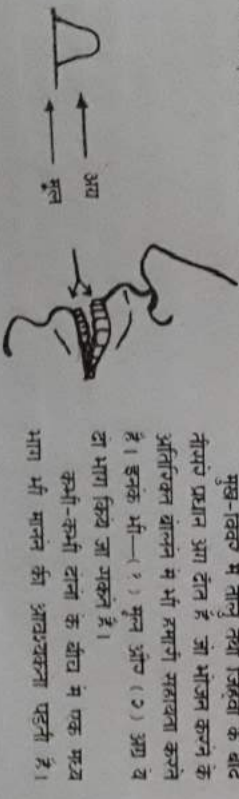 मुख-विवर में तालु तथा जिह्वा के बाद
तीसरे प्रधान अंग दाँत हैं जो भोजन करने के
अतिरिक्त बोलने में भी हमारी सहायता करते
हैं। इनके भी—(१) मूल और (२) अग्र ये
दो भाग किये जा सकते हैं।
कभी-कभी दाँतों के बीच में एक मध्य
भाग भी मानने की आवश्यकता पड़ती है।
अग्र
मूल